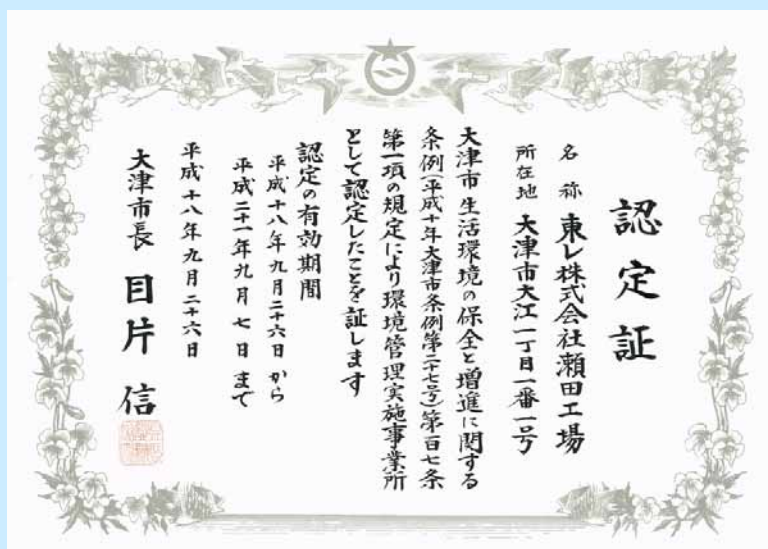 認定証
名称 東レ株式会社瀬田工場
所在地 大津市大江一丁目一番一号
大津市生活環境の保全と増進に関する
条例(平成十年大津市条例第二十七号)第百七条
第一項の規定により環境管理実施事業所
として認定したことを証します
認定の有効期間
平成十八年九月二十六日から
平成二十一年九月七日まで
平成十八年九月二十六日
大津市長 目片信